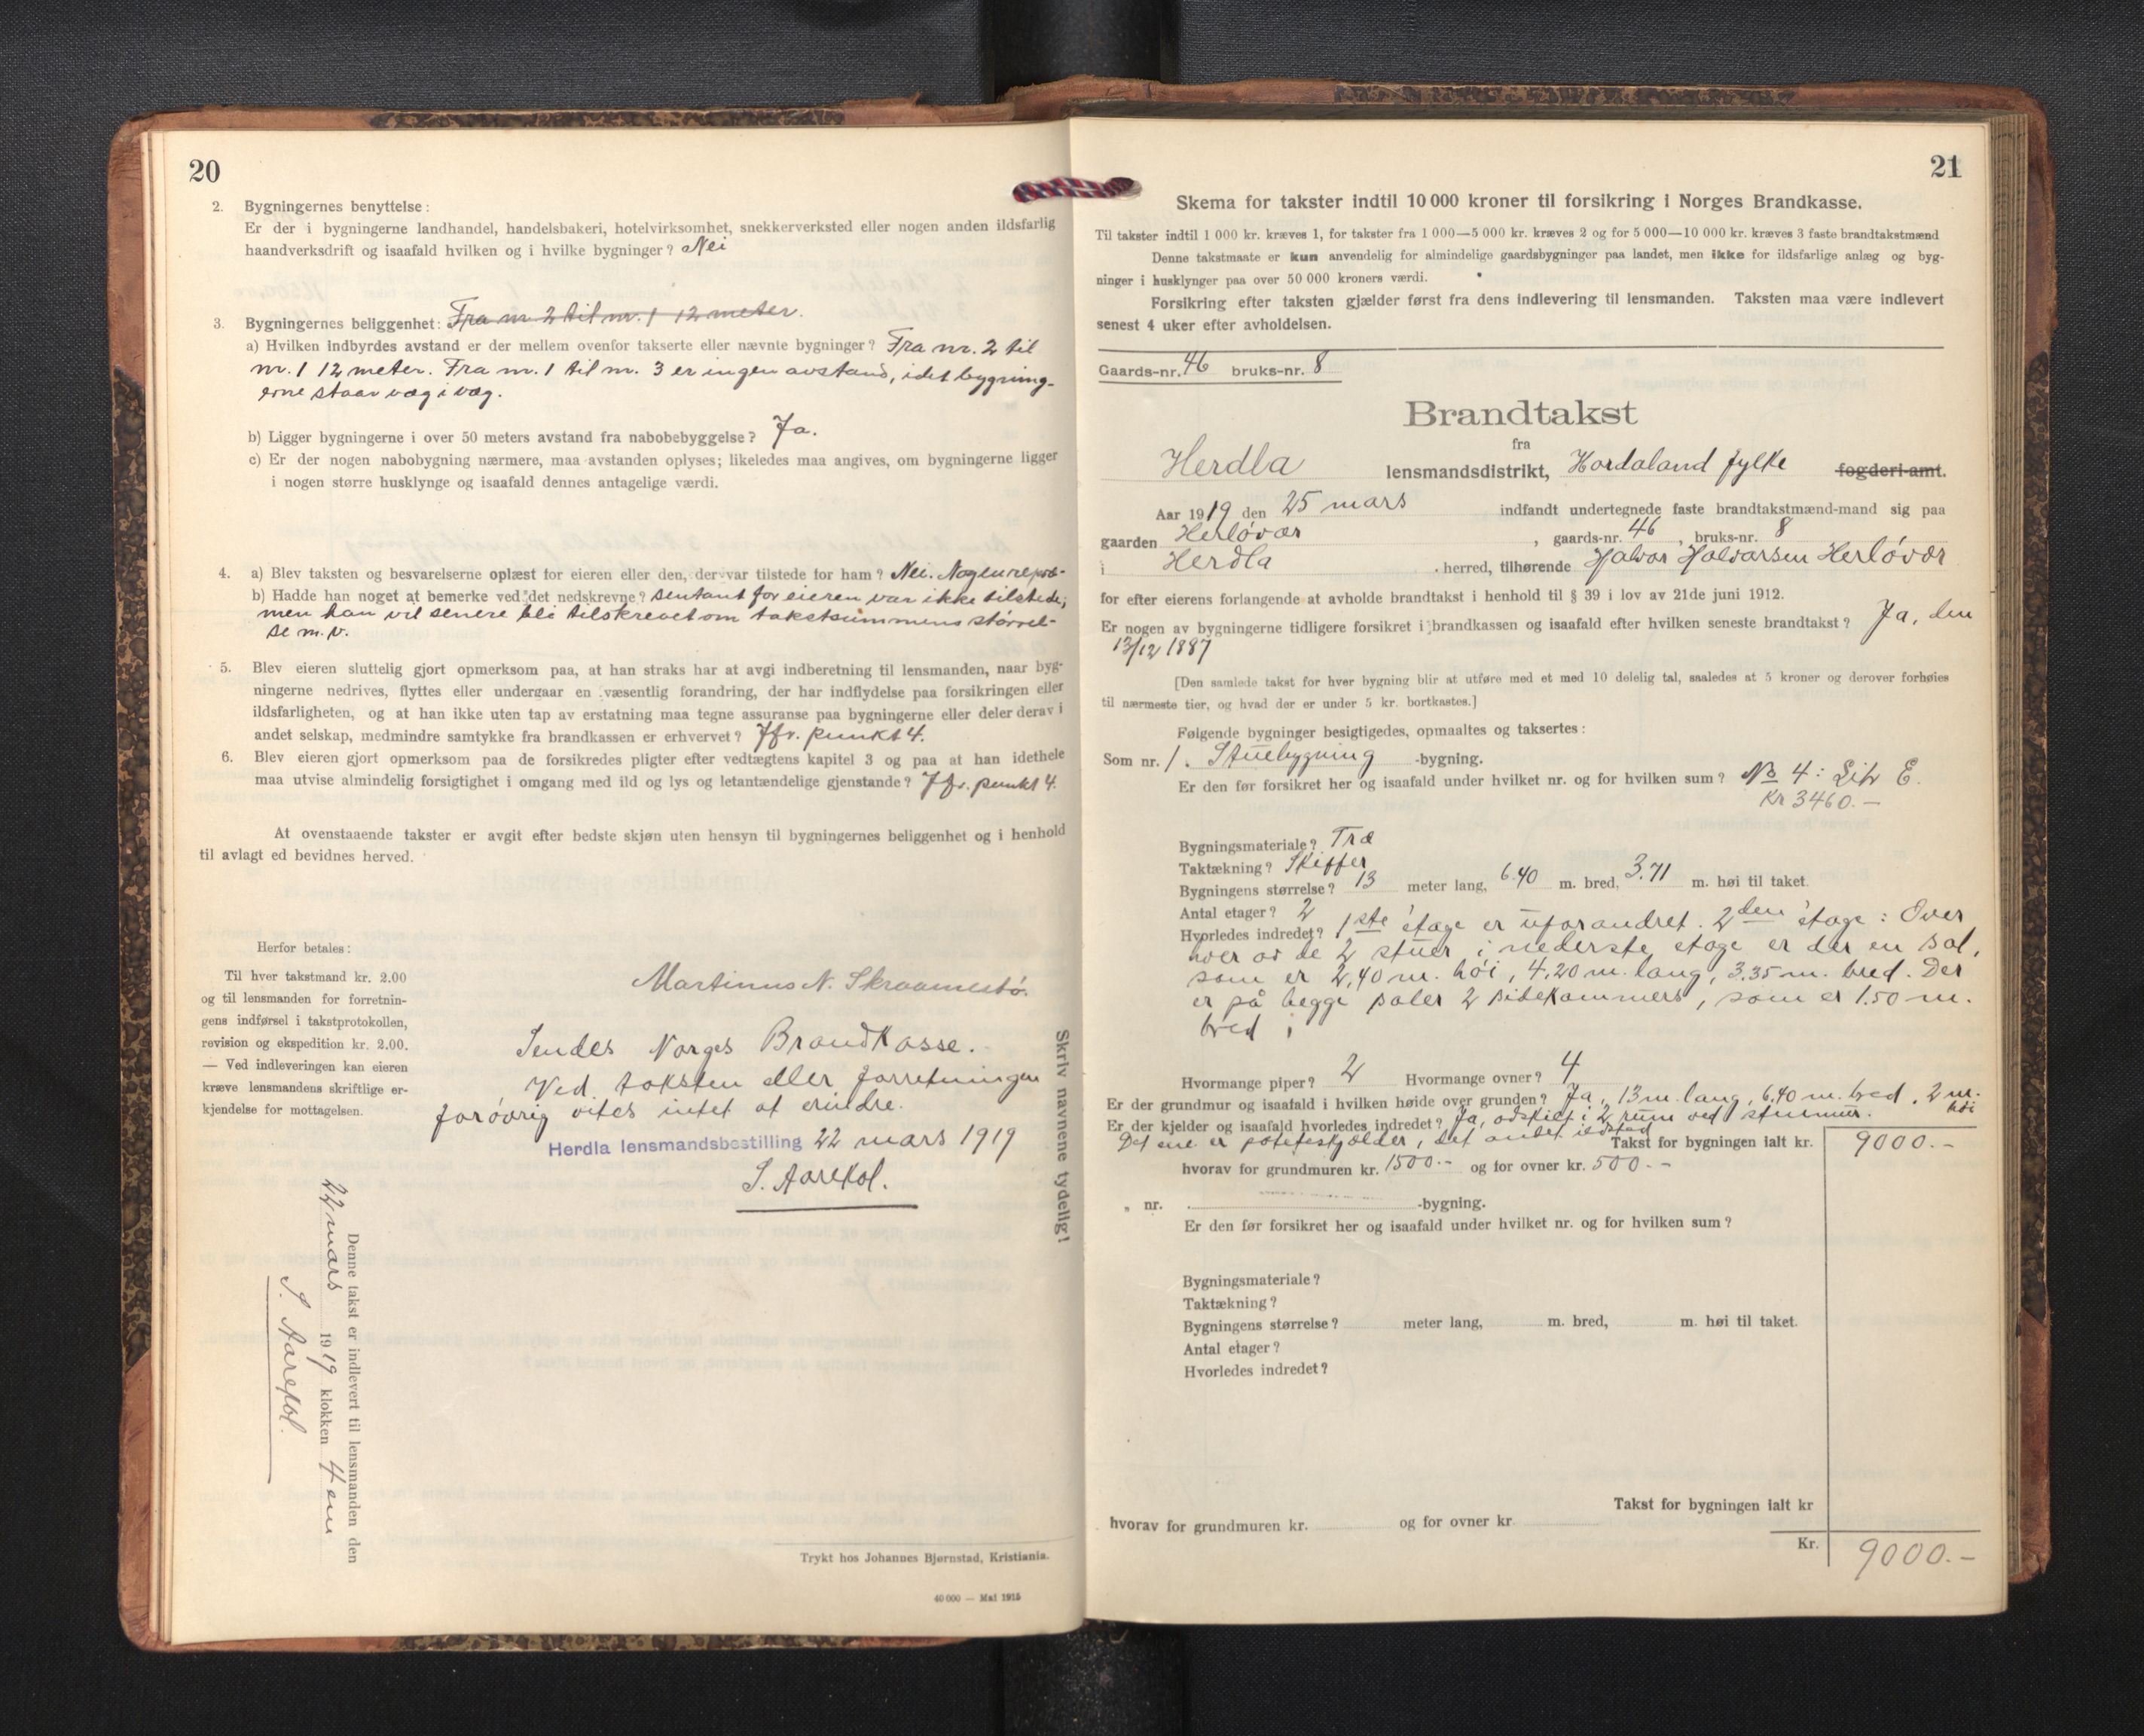 20
2. Bygningernes benyttelse:
Er der i bygningerne landhandel, handelsbakeri, hotelvirksomhet, snekkerverksted eller nogen anden ildsfarlig
haandverksdrift og isaafald hvilken og i hvilke bygninger? Nei
3. Bygningernes beliggenhet: Fra nr. 2 til nr. 1 12 meter.
a) Hvilken indbyrdes avstand er der mellem ovenfor takserte eller nævnte bygninger? Fra nr. 2 til
nr. 1 12 meter. Fra nr. 1 til nr. 3 er ingen avstand, idet bygning-
erne staar væg i væg.
b) Ligger bygningerne i over 50 meters avstand fra nabobebyggelse? Ja.
c) Er der nogen nabobygning nærmere, maa avstanden oplyses; likeledes maa angives, om bygningerne ligger
i nogen større husklynge og isaafald dennes antagelige værdi.
4. a) Blev taksten og besvarelserne oplæst for eieren eller den, der var tilstede for ham? Nei. Nogen repræ-
b) Hadde han noget at bemerke ved det nedskrevne? sentant for eieren var ikke tilstede,
men han vil senere bli tilskrevet om takstsummens størrel-
se m.v.
5. Blev eieren sluttelig gjort opmerksom paa, at han straks har at avgi indberetning til lensmanden, naar byg-
ningerne nedrives, flyttes eller undergaar en væsentlig forandring, der har indflydelse paa forsikringen eller
ildsfarligheten, og at han ikke uten tap av erstatning maa tegne assuranse paa bygningerne eller deler derav i
andet selskap, medmindre samtykke fra brandkassen er erhvervet? Jfr. punkt 4.
6. Blev eieren gjort opmerksom paa de forsikredes pligter efter vedtægtens kapitel 3 og paa at han idethele
maa utvise almindelig forsigtighet i omgang med ild og lys og letantændelige gjenstande? Jfr. punkt 4.
At ovenstaaende takster er avgit efter bedste skjøn uten hensyn til bygningernes beliggenhet og i henhold
til avlagt ed bevidnes herved.
Herfor betales:
Til hver takstmand kr. 2.00
og til lensmanden for forretnin-
gens indførsel i takstprotokollen,
revision og ekspedition kr. 2.00.
— Ved indleveringen kan eieren
kræve lensmandens skriftlige er-
kjendelse for mottagelsen.
Martinus N. Skraamestø.
Sendes Norges Brandkasse.
Ved taksten eller forretningen
forøvrig vites intet at erindre.
Herdla lensmandsbestilling 22 mars 1919
S. Aarekol.
Skriv navnene tydelig!
Denne takst er indlevert til lensmanden den
22 mars 1919 klokken 4 em
S. Aarekol.
Trykt hos Johannes Bjørnstad, Kristiania.
40 000 — Mai 1915
21
Skema for takster indtil 10 000 kroner til forsikring i Norges Brandkasse.
Til takster indtil 1 000 kr. kræves 1, for takster fra 1 000—5 000 kr. kræves 2 og for 5 000—10 000 kr. kræves 3 faste brandtakstmænd
Denne takstmaate er kun anvendelig for almindelige gaardsbygninger paa landet, men ikke for ildsfarlige anlæg og byg-
ninger i husklynger paa over 50 000 kroners værdi.
Forsikring efter taksten gjælder først fra dens indlevering til lensmanden. Taksten maa være indlevert
senest 4 uker efter avholdelsen.
Gaards-nr. 46 bruks-nr. 8
Brandtakst
fra
Herdla lensmandsdistrikt, Hordaland fylke fogderi-amt.
Aar 1919 den 25 mars indfandt undertegnede faste brandtakstmænd-mand sig paa
gaarden Herløvær, gaards-nr. 46, bruks-nr. 8
i Herdla herred, tilhørende Halvor Halvarsen Herløvær
for efter eierens forlangende at avholde brandtakst i henhold til § 39 i lov av 21de juni 1912.
Er nogen av bygningerne tidligere forsikret i brandkassen og isaafald efter hvilken seneste brandtakst? Ja, den
13/12 1887
[Den samlede takst for hver bygning blir at utføre med et med 10 delelig tal, saaledes at 5 kroner og derover forhøies
til nærmeste tier, og hvad der er under 5 kr. bortkastes.]
Følgende bygninger besigtigedes, opmaaltes og taksertes:
Som nr. 1. Stuebygning -bygning.
Er den før forsikret her og isaafald under hvilket nr. og for hvilken sum? No 4: Litr E.
Kr 3460.—
Bygningsmateriale? Træ
Taktækning? Skiffer
Bygningens størrelse? 13 meter lang, 6.40 m. bred, 3.71 m. høi til taket.
Antal etager? 2
Hvorledes indredet? 1ste etage er uforandret. 2den etage: Over
hver av de 2 stuer i nederste etage er der en sal,
som er 2,40 m. høi, 4,20 m. lang, 3.35 m. bred. Der
er på begge saler 2 sidekammers, som er 1.50 m.
bred i
Hvormange piper? 2 Hvormange ovner? 4
Er der grundmur og isaafald i hvilken høide over grunden? Ja, 13 m. lang, 6,40 m. bred, 2 m.
høi
Er der kjelder og isaafald hvorledes indredet? Ja, adskilt i 2 rum ved stenmur.
Det ene er poteteskjælder, det andet ildsted
Takst for bygningen ialt kr. 9000.—
hvorav for grundmuren kr. 1500.— og for ovner kr. 500.—
„ nr. -bygning.
Er den før forsikret her og isaafald under hvilket nr. og for hvilken sum?
Bygningsmateriale?
Taktækning?
Bygningens størrelse? meter lang, m. bred, m. høi til taket.
Antal etager?
Hvorledes indredet?
Takst for bygningen ialt kr
hvorav for grundmuren kr. og for ovner kr
Kr. 9000.—